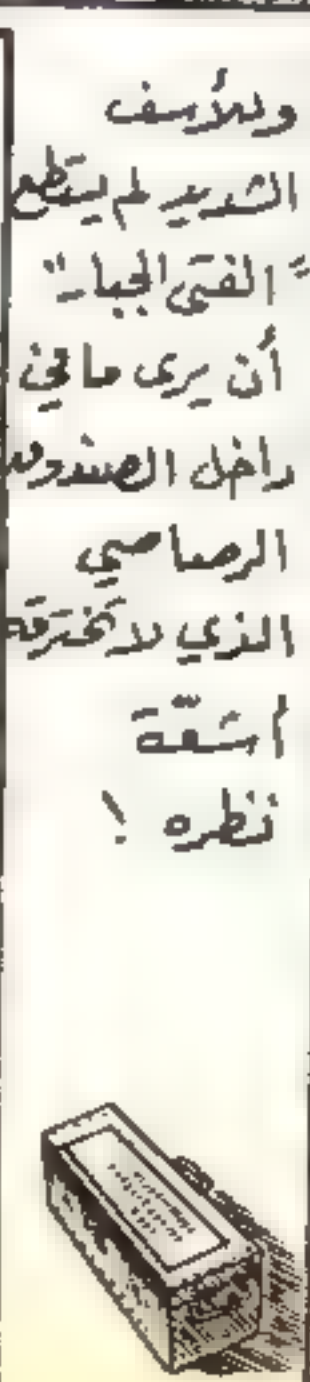 وللأسف
الشديد لم يستطع
"الفتى الجبار"
أن يرى ما في
داخل الصندوق
الرصاصي
الذي لا تخترقه
أشعّة
نظره !